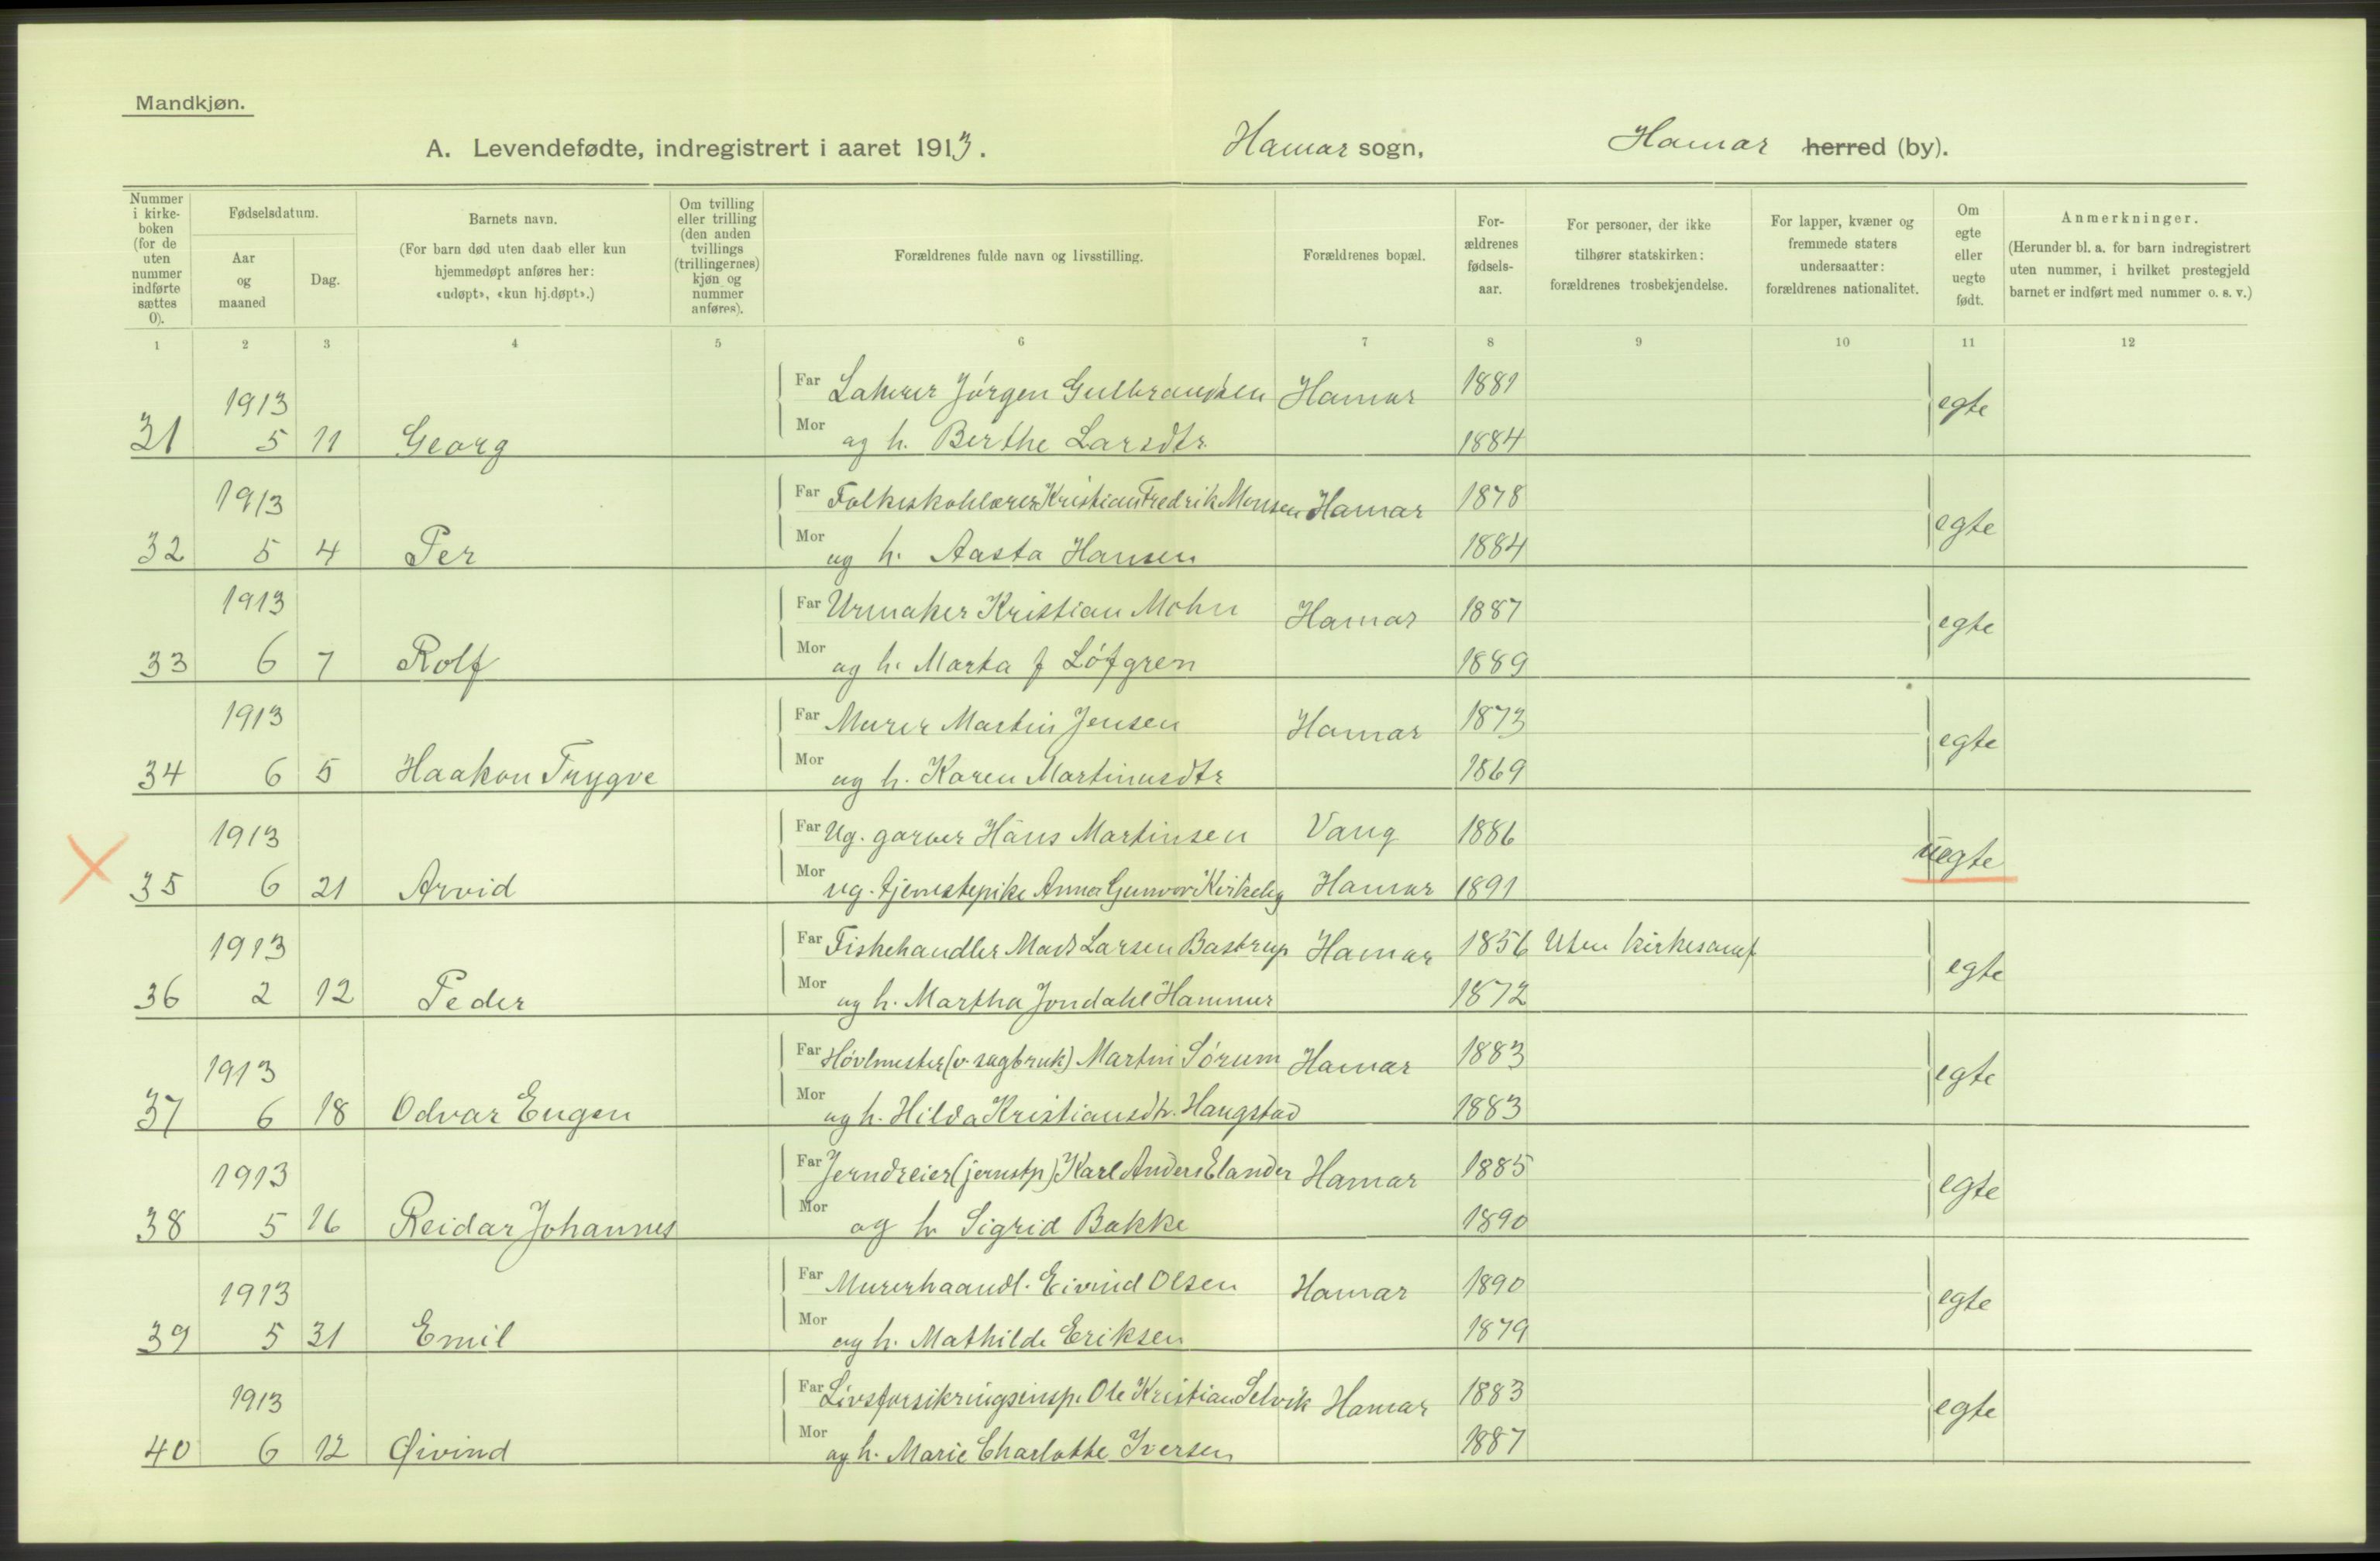 Mandkjøn.
A. Levendefødte, indregistrert i aaret 1913. Hamar sogn, Hamar herred (by).
Nummer i kirkeboken (for de uten nummer indførte sættes 0).
Fødselsdatum.
Aar og maaned
Dag.
Barnets navn.
(For barn død uten daab eller kun hjemmedøpt anføres her: «udøpt», «kun hj.døpt».)
Om tvilling eller trilling (den anden tvillings (trillingernes) kjøn og nummer anføres).
Forældrenes fulde navn og livsstilling.
Forældrenes bopæl.
Forældrenes fødselsaar.
For personer, der ikke tilhører statskirken: forældrenes trosbekjendelse.
For lapper, kvæner og fremmede staters undersaatter: forældrenes nationalitet.
Om egte eller uegte født.
Anmerkninger.
(Herunder bl. a. for barn indregistrert uten nummer, i hvilket prestegjeld barnet er indført med nummer o. s. v.)
1 2 3 4 5 6 7 8 9 10 11 12
1913 Far Lakerer Jörgen Gulbrandsen Hamar 1881 egte
31 5 11 Georg Mor og h. Berthe Larsdtr. 1884
1913 Far Folkeskolelærer Kristian Fredrik Monsen Hamar 1878 egte
32 5 4 Per Mor og h. Aasta Hansen 1884
1913 Far Urmaker Kristian Mohn Hamar 1887 egte
33 6 7 Rolf Mor og h. Marta f Löfgren 1889
1913 Far Murer Martin Jensen Hamar 1873 egte
34 6 5 Haakon Trygve Mor og h. Karen Martinusdtr 1869
1913 Far Ug. garver Hans Martinsen Vang 1886 uegte
35 6 21 Arvid Mor ug. tjenestepike Anna Gunvor Kirkeby Hamar 1891
1913 Far Fiskehandler Mads Larsen Bastrup Hamar 1856 Uten kirkesamf egte
36 2 12 Peder Mor og h. Martha Jondahl Hammer 1872
1913 Far Hövlmester (v. sagbruk) Martin Sörum Hamar 1883 egte
37 6 18 Odvar Eugen Mor og h. Hilda Kristiansdtr. Haugstad 1883
1913 Far Jerndreier (jernstp) Karl Anders Elander Hamar 1885 egte
38 5 16 Reidar Johannes Mor og h Sigrid Bakke 1890
1913 Far Murerhaandl. Eivind Olsen Hamar 1890 egte
39 5 31 Emil Mor og h. Mathilde Eriksen 1879
1913 Far Livsforsikringsinsp. Ole Kristian Selvik Hamar 1883 egte
40 6 12 Øivind Mor og h. Marie Charlotte Iversen 1887